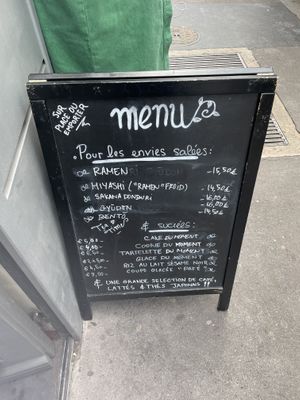 SUR
PLACE OU
EMPORTER
menu
Pour les envies salées:
RAMEN -15,50€
MIYASHI ("RAMEN" FROID) -14,50€
SAKANA DONBURI -16,00€
GYUDON
BENTO -14,50€
Tea
Time
& sucrées:
CAKE DU MOMENT
COOKIE DU MOMENT
TARTELETTE DU MOMENT
GLACE DU MOMENT
RIZ AU LAIT SÉSAME NOIR
COUPE GLACÉE
& UNE GRANDE SÉLECTION DE CAFÉ,
LATTÉS & THÉS JAPONAIS !!